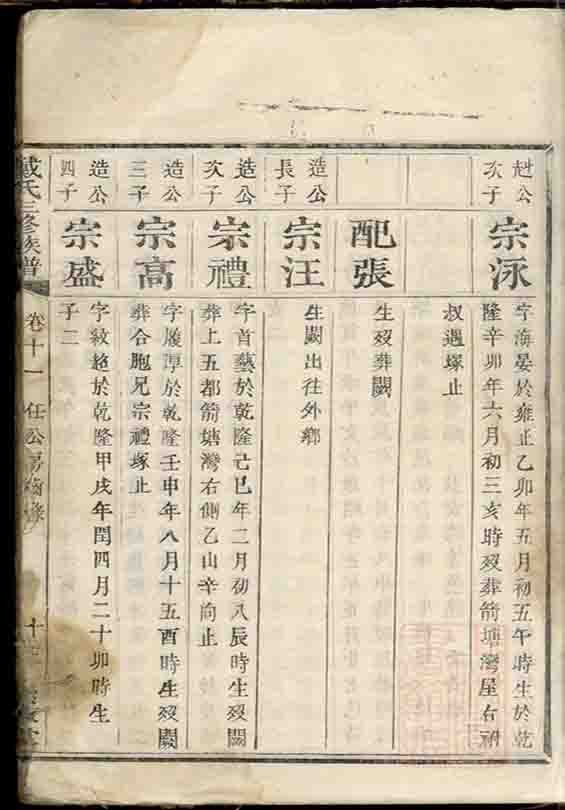 公
次子
宗泳
字海晏於雍正乙卯年五月初五午時生於乾
隆辛卯年六月初三亥時歿葬箭塘灣屋右
叔遇塚止
配張
生歿葬闕
造公
長子
宗汪
生闕出往外鄉
造公
次子
宗禮
字首藝於乾隆己巳年二月初八辰時生歿闕
葬上五都箭塘灣右側乙山辛向止
造公
三子
宗高
字履厚於乾隆壬申年八月十五酉時生歿闕
葬合胞兄宗禮塚止
造公
四子
宗盛
字紋超於乾隆甲戌年閏四月二十卯時生
子二
戴氏三修族譜
卷十一
任公房